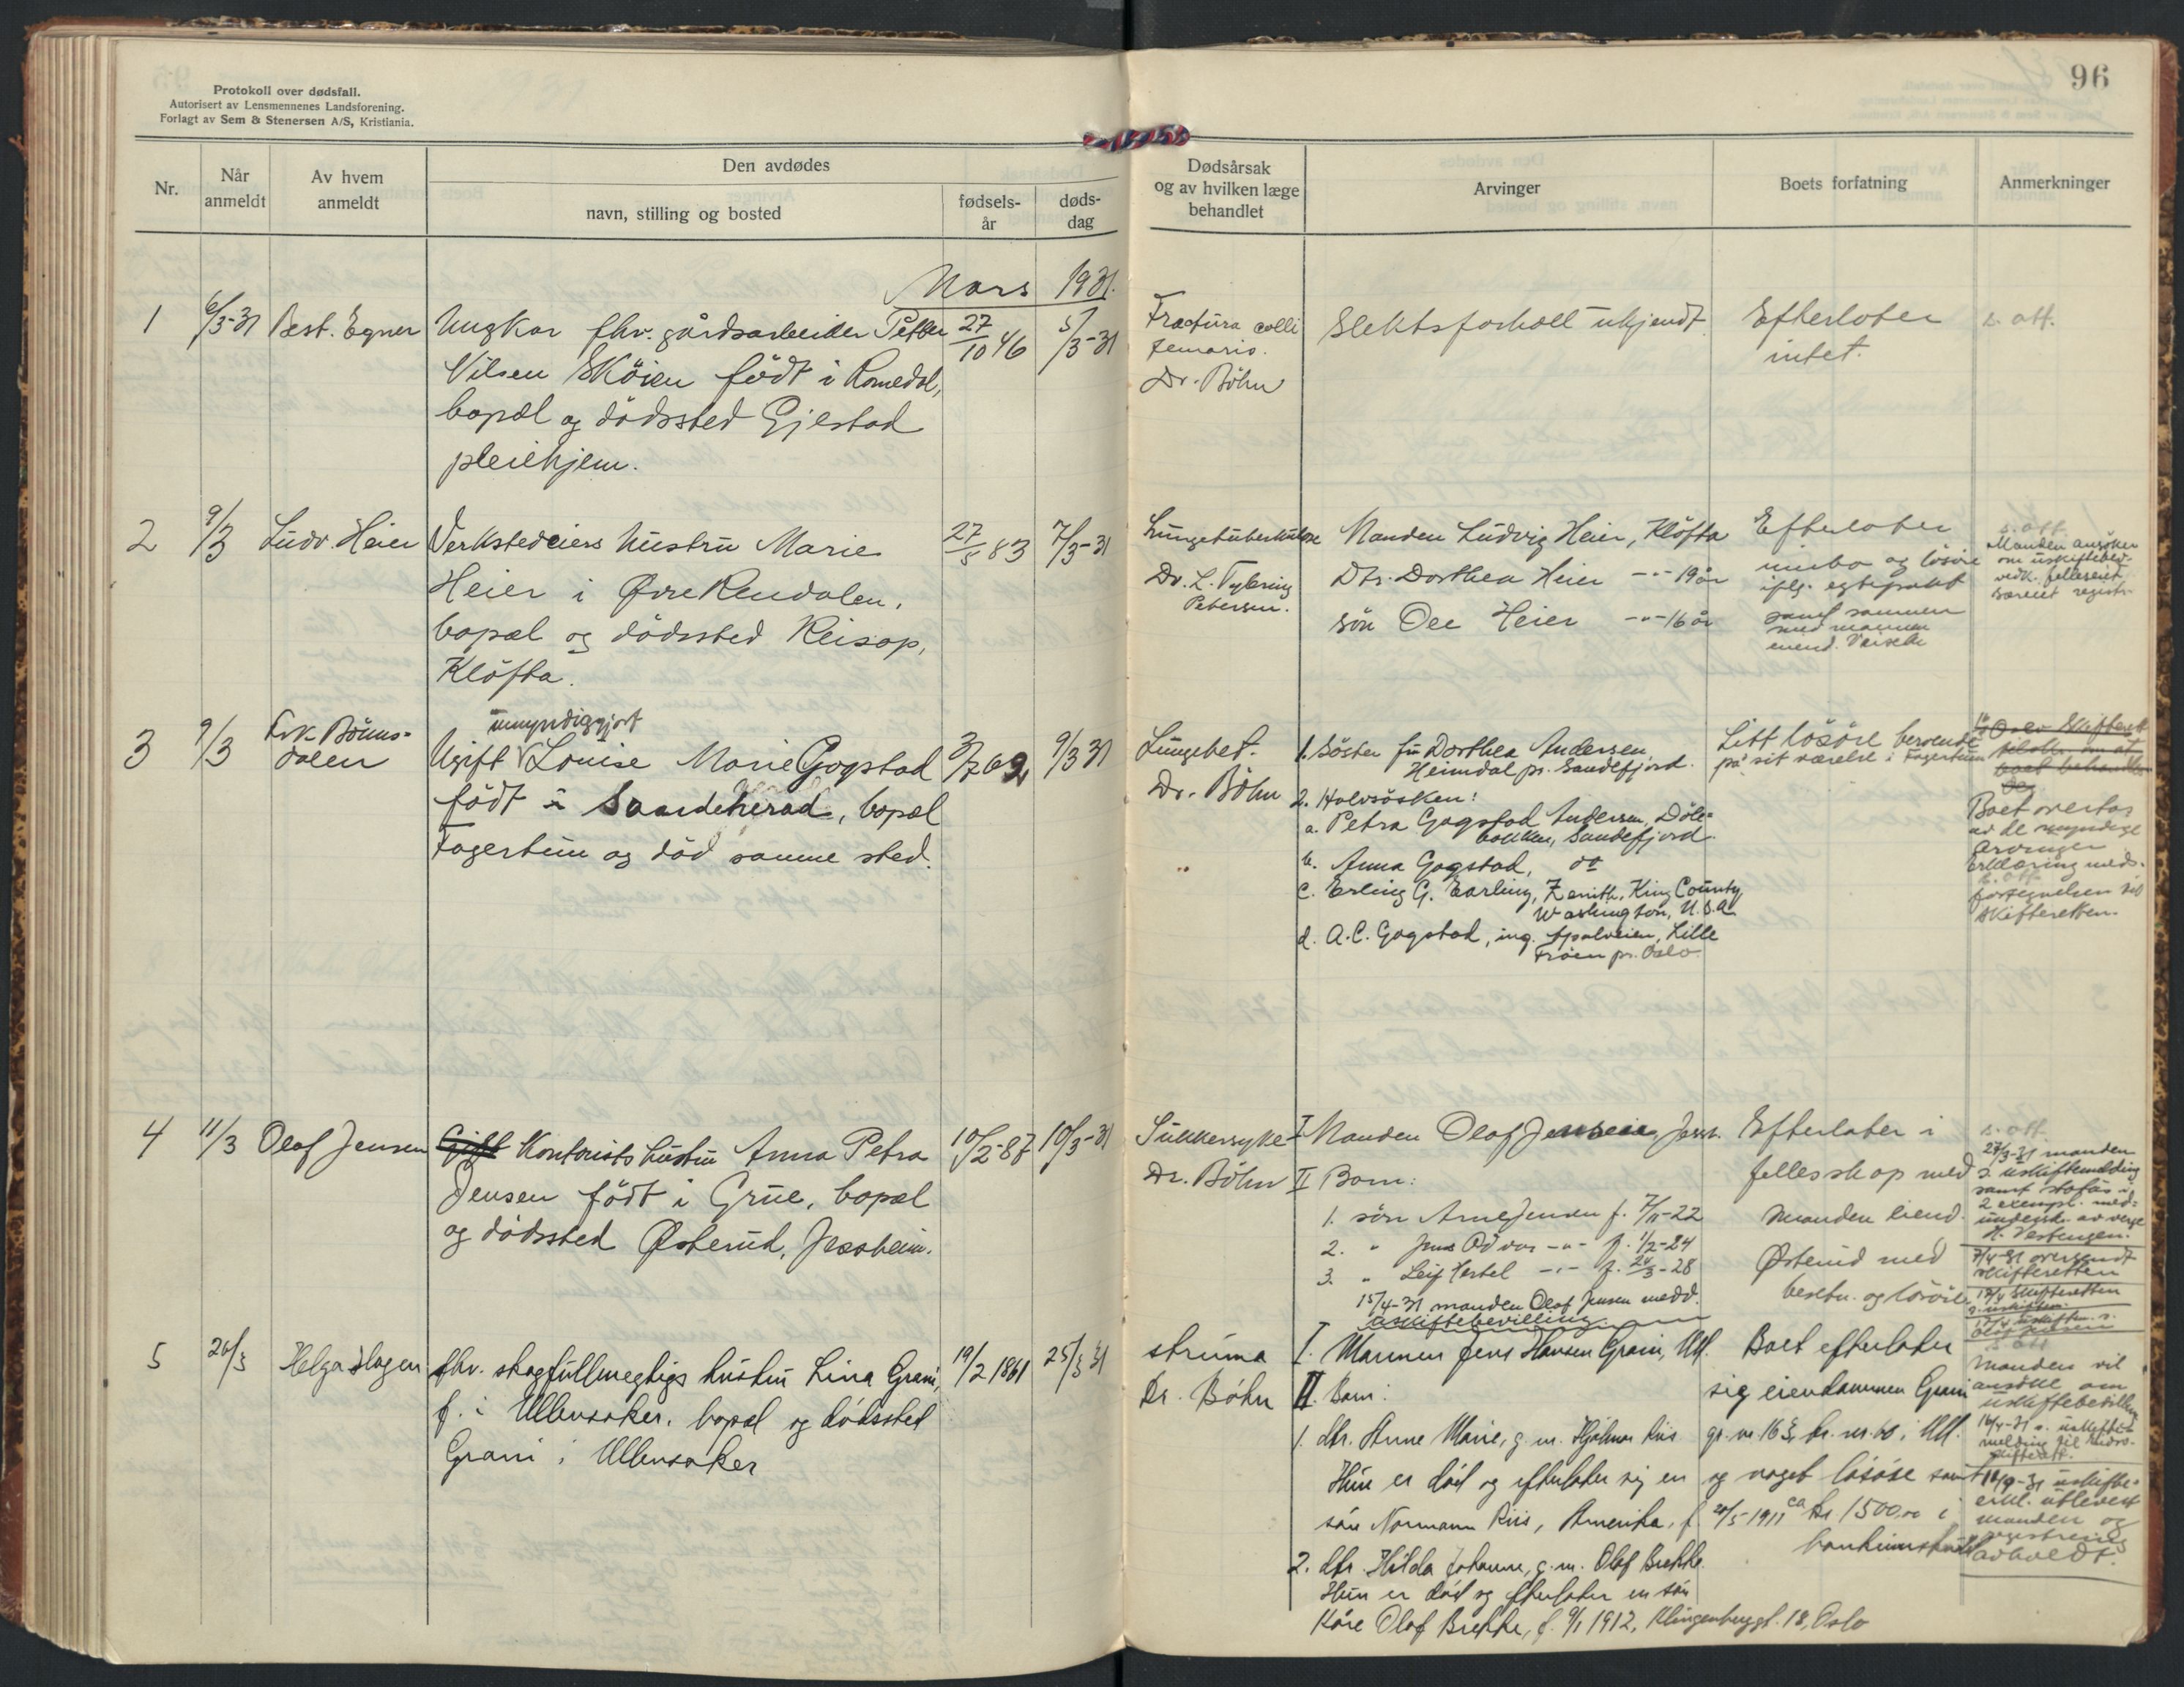 Protokoll over dødsfall.
Autorisert av Lensmennenes Landsforening.
Forlagt av Sem & Stenersen A/S, Kristiania.
96
Nr.
Når
anmeldt
Av hvem
anmeldt
Den avdødes
navn, stilling og bosted
fødsels-
år
døds-
dag
Dødsårsak
og av hvilken læge
behandlet
Arvinger
Boets forfatning
Anmerkninger
Mars 1931.
1
6/3-31
Best. Egner
Ungkar fhv. gårdsarbeider Petter
Nilsen Sköien födt i Romedal,
bopæl og dödssted Gjestad
pleiehjem.
27/10 46
5/3-31
Fractura colli
femoris.
Dr. Böhn
Slektsforhold ukjendt
Efterlater
intet.
s. att.
2
9/3
Ludv. Heier
Verkstedeiers hustru Marie
Heier i Øvre Rendalen,
bopæl og dödssted Reisop,
Klöfta.
27/8 83
7/3-31
Lungetuberkulose
Dr. L. Tybring
Petersen.
Manden Ludvig Heier, Klöfta
Dtr. Dorthea Heier -"- 19 år
sön Ole Heier -"- 16 år
Efterlater
innbo og lösöre
iflg. egtepakt
samt sammen
med mannen
eiend.
s. att.
Manden ansöker
om uskiftebev.
vedk. felleseiet
særeiet registr.
3
9/3
Frk. Böhms-
dalen
umyndiggjort
Ugift Louise Marie Gogstad
födt i Sandeherad, bopæl
Fagertun og död samme sted.
3/7 62
9/3 31
Lungebet.
Dr. Böhn
1. Söster fru Dorthea Andersen,
Heimdal pr. Sandefjord.
2. Halvsösken:
a. Petra Gogstad Andersen, Döle-
bakken, Sandefjord.
b. Anna Gogstad, do
c. Erling G. Earling, Zenith, King County,
Washington, U.S.A.
d. A.C. Gogstad, ing. Apalveien, Lille
Fröen pr. Oslo.
Litt lösöre beroende
på sit værelse i Fagertun
Oslo Skifterett
om at
boet behandles
Boet overtas
av de myndige
arvinger
Erklæring meds.
s. att.
fortegnelsen til
skifteretten.
4
11/3
Olaf Jensen
Gift Kontorists hustru Anna Petra
Jensen födt i Grue, bopæl
og dödssted Østerud, Jessheim.
10/2-87
10/3-31
Sukkersyke
Dr. Böhn
I Manden Olaf Jensen, Jessh.
II Barn:
1. sön Arne Jensen f. 7/11-22
2. " Jens Odvar -"- f. 1/2-24
3. " Leif Hertel -"- f. 24/3-28
15/4-31 manden Olaf Jensen medd.
uskiftebevilling.
Efterlater i
fellesskap med
manden eiend.
Østerud med
besetn. og lösöre
s. att.
27/3-31 manden
s. uskiftemelding
samt
2 exempl. med-
undersk. av verge
H. Vestengen.
7/4-31 oversendt
skifteretten
5
26/3
Helga Hagen
fhv. skogfullmegtigs hustru Lina Grani,
f. i Ullensaker, bopæl og dödssted
Grani i Ullensaker
19/2 1861
25/3 31
struma
Dr. Böhn
I. Mannen Jens Hansen Grani, Ull.
II. Barn:
1. dtr. Anne Marie, g. m. Hjalmar Riis
Hun er död og efterlater sig en
sön Normann Riis, Amerika, f. 20/5-1911
2. dtr. Hilda Johanne, g. m. Olaf Brekke.
Hun er död og efterlater en sön
Kåre Olaf Brekke, f. 9/1 1912, Klingenberggt. 18, Oslo
Boet efterlater
sig eiendommen Grani
gr. nr. 163, br. nr. 60 i Ull.
og noget lösöre samt
ca kr. 1500,00 i
bankinnskudd
s. att
Manden vil
ansöke om
uskiftebevilling
16/4-31 s. uskifte-
melding til
skifterett.
18/9-31 uskifte-
erkl. utlevert
manden og
registrering
avholdt.